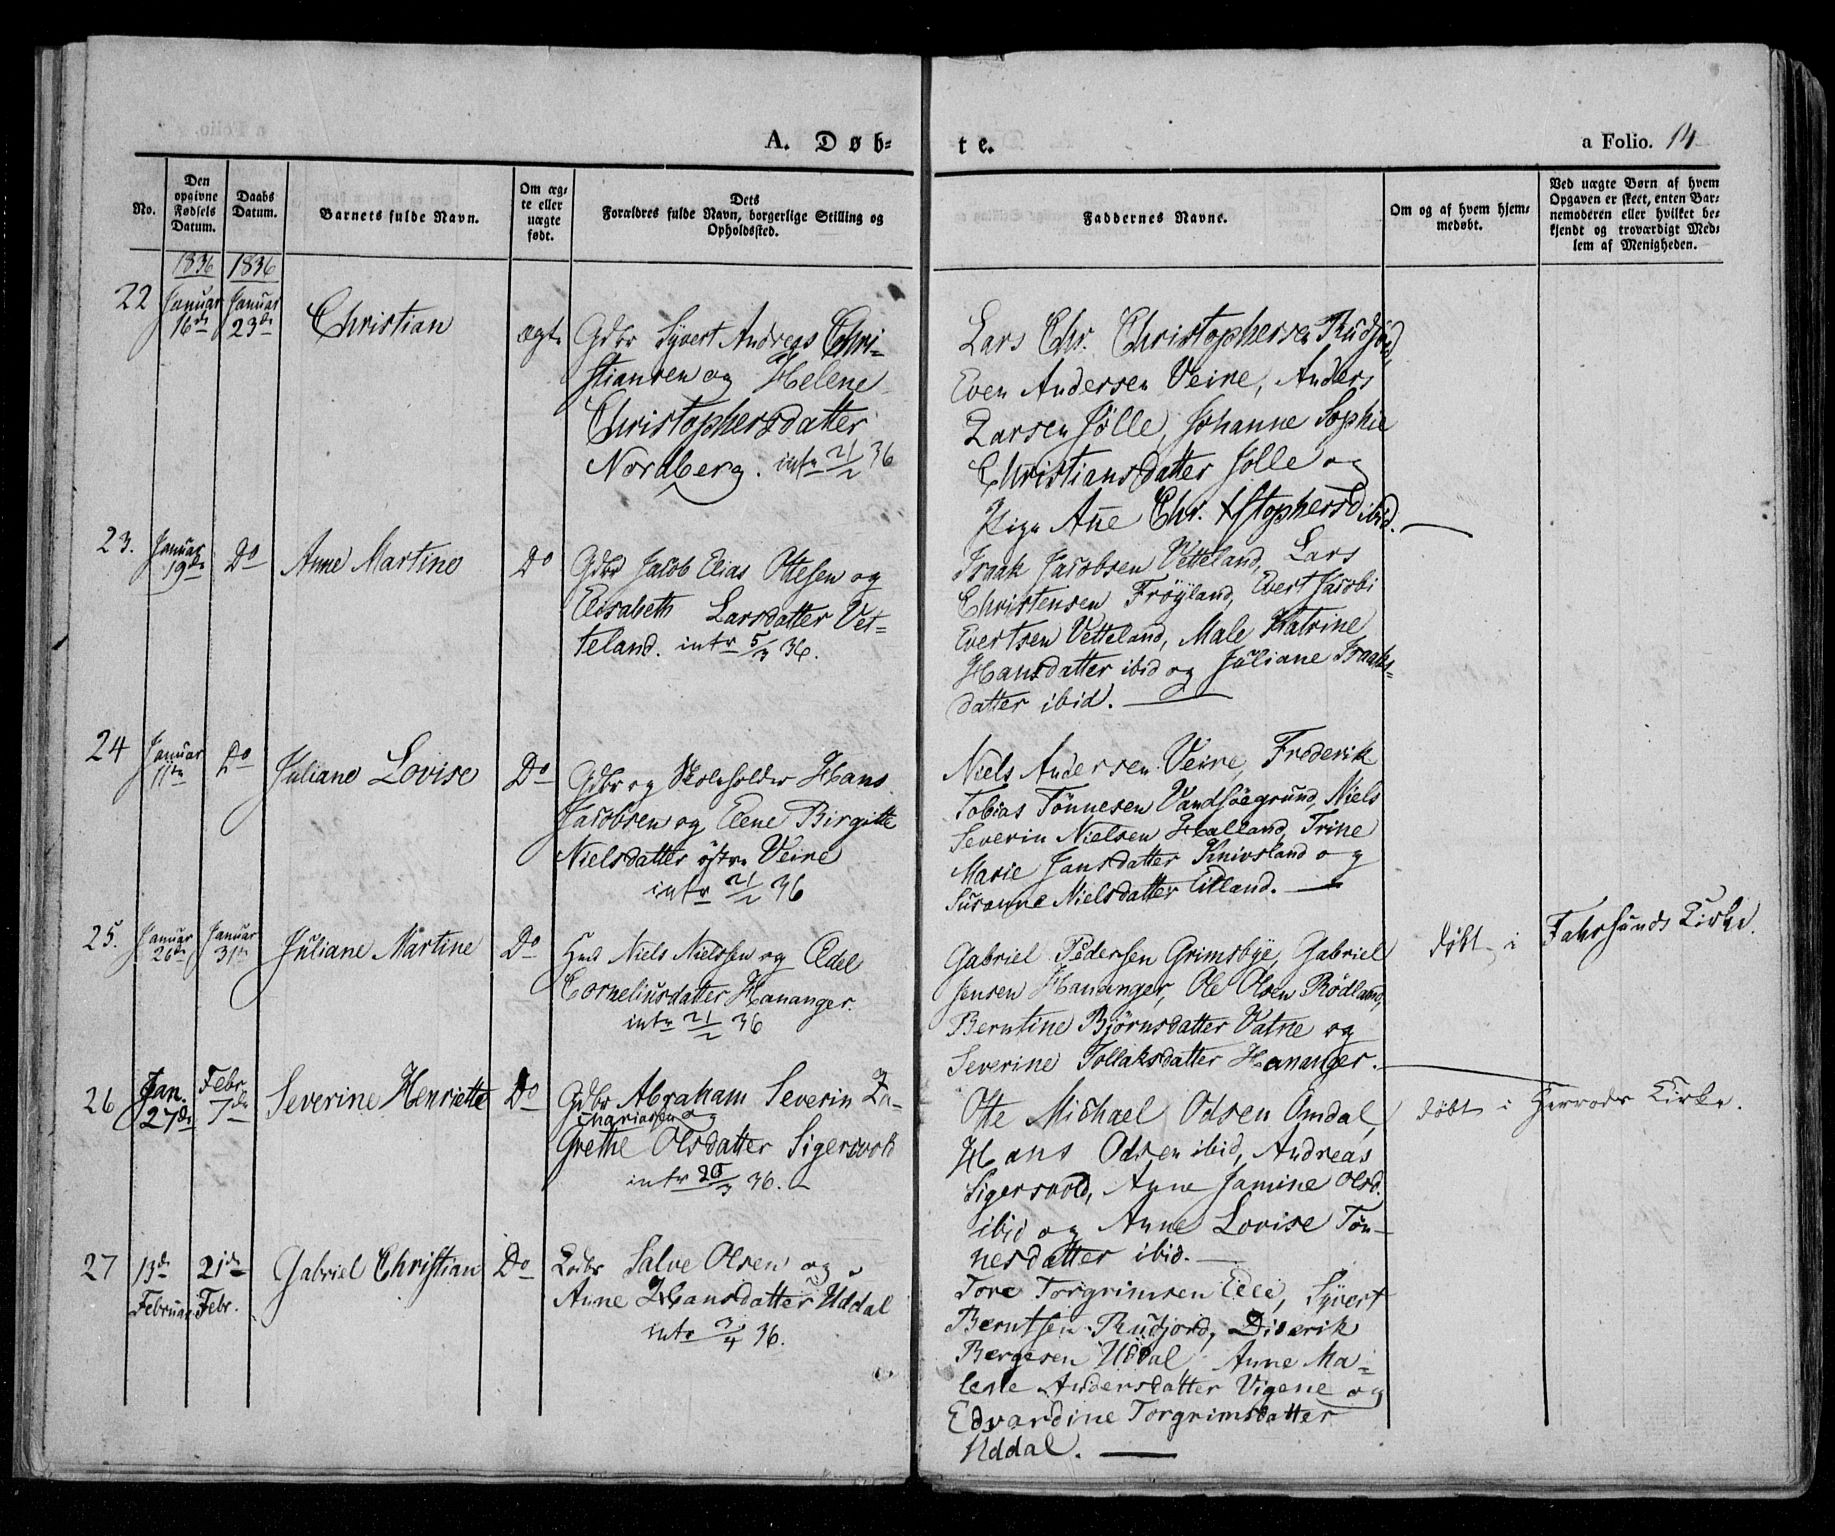 A. Døb-
te.
a Folio. 14
No.
Den opgivne Fødsels Datum.
Daabs Datum.
Barnets fulde Navn.
Om ægte eller uægte født.
Dets Forældres fulde Navn, borgerlige Stilling og Opholdssted.
Faddernes Navne.
Om og af hvem hjemmedøbt.
Ved uægte Børn af hvem
Opgaven er skeet, enten Bar-
nemoderen eller hvilket be-
kjendt og troværdigt Med-
lem af Menigheden.
1836 1836
22 Januar 16de Januar 23de Christian ægte
Gdbr Syvert Andreas Chri-
stiansen og Helene
Christophersdatter
Nordberg. intr 21/2 36
Lars Chr. Christophersen Rudjord,
Even Andersen Veire, Anders
Larsen Jølle, Johanne Sophie
Christiansdatter Jølle og
Pige Ane Chr. Xstophersd ibid.
23. Januar 19de Do Anne Martine Do
Gdbr Jacob Elias Ottesen og
Elisabeth Larsdatter Vet-
teland. intr 5/3 36.
Isaak Jacobsen Vetteland, Lars
Christensen Frøyland, Evert Jacobi
Evertsen Vetteland, Male Katrine
Hansdatter ibid og Juliane Isaaks-
datter ibid.
24 Januar 11te Do Juliane Lovise Do
Gdbr og Skoleholder Hans
Jacobsen og Elene Birgitte
Nielsdatter østre Veire
intr 21/2 36
Niels Andersen Veire, Frederik
Tobias Tønnesen Vandsøegrund, Niels
Severin Nielsen Halland, Trine
Marie Jansdatter Knivsland og
Susanne Nielsdatter Eitland.
25. Januar 26de Januar 31te Juliane Martine Do
Niels Nielssen og Edel
Corneliusdatter Hananger.
intr 21/2 36
Gabriel Pedersen Grimsbye, Gabriel
Jensen Hananger, Ole Olsen Rødland,
Berntine Bjørnsdatter Vatne og
Severine Tollaksdatter Hananger.
døbt i Fahrsunds Kirke.
26 Jan. 27de Febr. 7de Severine Henriette Do
Gdbr Abraham Severin Za-
chariassen og
Grethe Olsdatter Sigersvold
intr 20/3 36.
Otte Michael Odsen Omdal,
Hans Odsen ibid, Andreas
Sigersvold, Anne Jamine Olsd.
ibid og Anne Lovise Tøn-
nesdatter ibid.
døbt i Herrods Kirke.
27 13de Februar 21de Febr. Gabriel Christian Do
Salve Olsen og
Anne Hansdatter Uddal
intr 3/4 36.
Tore Torgrimsen Elle, Syvert
Berntsen Rudjord, Diderik
Bergesen Uddal, Anne Ma-
lene Andersdatter Vigene og
Edvardine Torgrimsdatter
Uddal.